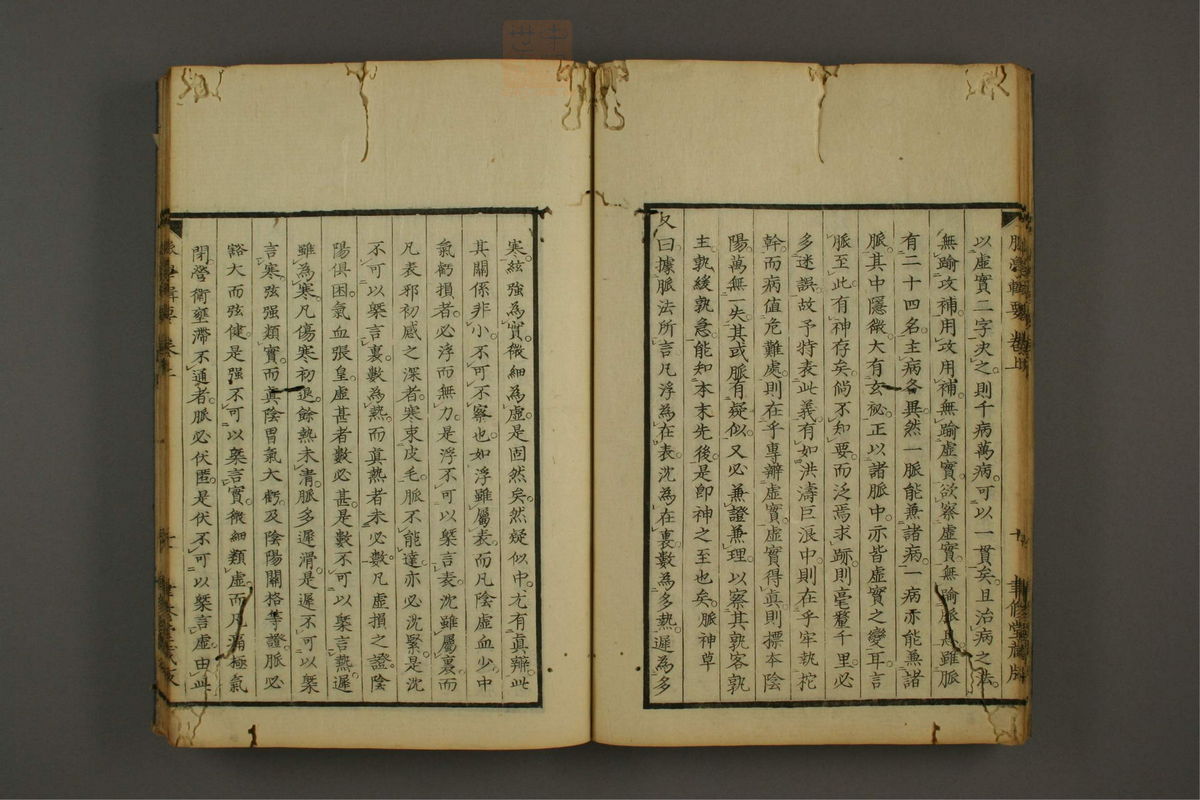 脈學輯要 卷上 十 聿修堂藏版
以虛實二字夬之則千病萬病可以一貫矣且治病之法
無踰攻補用攻用補無踰虛實欲察虛實無踰脈息雖脈
有二十四名主病各異然一脈能兼諸病一病亦能兼諸
脈其中隱微大有玄祕正以諸脈中亦皆虛實之變耳言
脈至此有神存矣倘不知要而泛焉求跡則毫釐千里必
多迷誤故予特表此義有如洪濤巨浪中則在乎牢執柁
幹而病值危難處則在乎專辨虛實虛實得眞則標本陰
陽萬無一失其或脈有疑似又必兼證兼理以察其孰客孰
主孰緩孰急能知本末先後是卽神之至也矣脈神草
又曰據脈法所言凡浮為在表沈為在裏數為多熱遲為多
寒絃強為實微細為虛是固然矣然疑似中尤有眞辨此
其關係非小不可不察也如浮雖屬表而凡陰虛血少中
氣虧損者必浮而無力是浮不可以槩言表沈雖屬裏而
凡表邪初感之深者寒束皮毛脈不能達亦必沈緊是沈
不可以槩言裏數為熱而眞熱者未必數凡虛損之證陰
陽俱困氣血張皇虛甚者數必甚是數不可以槩言熱遲
雖為寒凡傷寒初退餘熱未清脈多遲滑是遲不可以槩
言寒弦强類實而眞陰胃氣大虧及陰陽關格等證脈必
豁大而弦健是强不可以槩言實微細類虛而凡痛極氣
閉營衛壅滯不通者脈必伏匿是伏不可以槩言虛由此